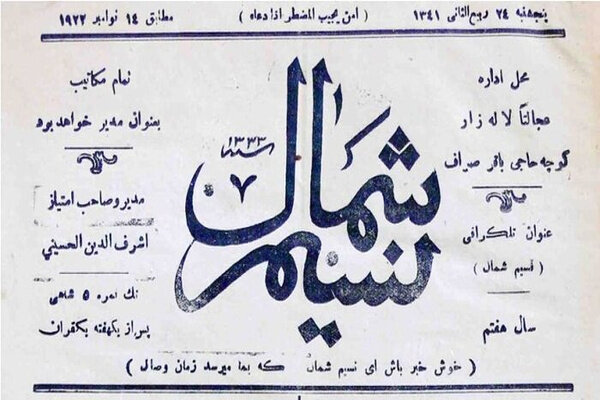 پنجشنبه ۲۴ ربیع الثانی ۱۳۴۱ ( امن یجیب المضطر اذا دعاه ) مطابق ۱۴ نوامبر ۱۹۲۲
محل اداره
عجالتاً لاله زار
کوچه حاجی باقر صراف
عنوان تلگرافی
( نسیم شمال )
سال هفتم
نسیم شمال
سنه ۱۳۳۳
۷
تمام مکاتیب
بعنوان مدیر خواهد بود
مدیر و صاحب امتیاز
اشرف الدین الحسینی
تك نمره ۵ شاهی
پس از یکهفته یکقران
( خوش خبر باش ای نسیم شمال که بما میرسد زمان وصال )